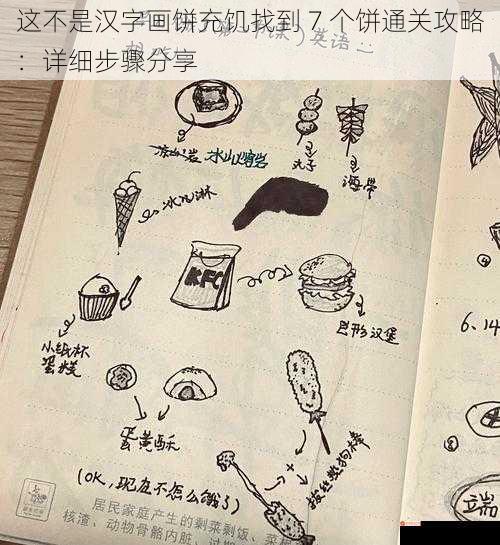 这不是汉字画饼充饥找到 7 个饼通关攻略
：详细步骤分享
英语
冰山熔岩
丸子
海带
冰淇淋
KFC
巨形汉堡
6、14
小纸杯
蛋糕
蛋黄酥
拉丝热狗棒
(OK，现在不怎么饿了)
居民家庭产生的剩菜剩饭、菜
核渣、动物骨骼内脏、过期
端